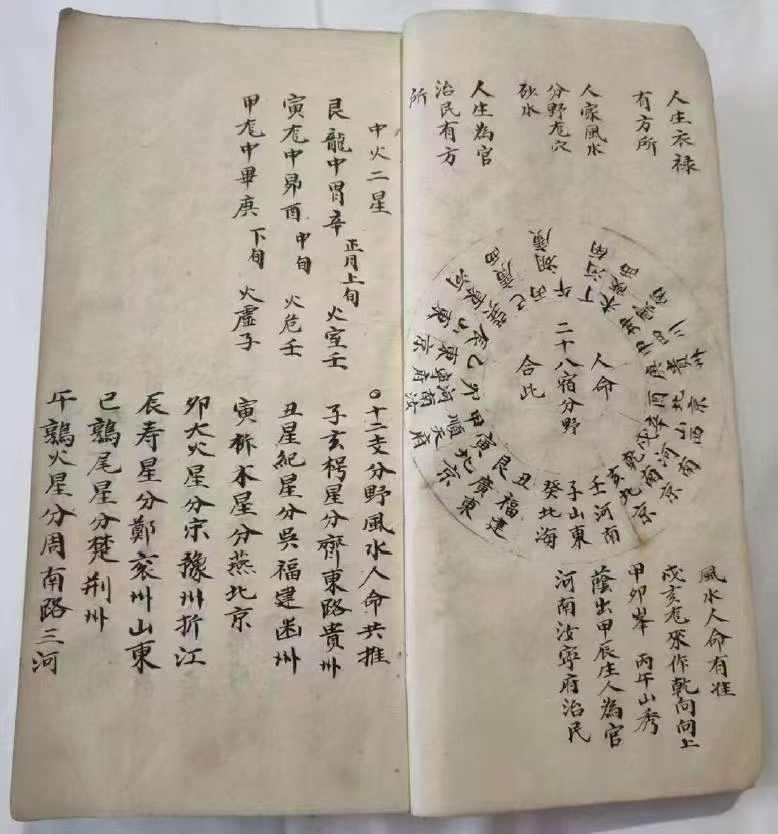 人生衣禄
有方所
人家風水
分野尨穴
砂水
人生為官
治民有方
所
人命
二十八宿分野
合此
壬河南
子山東
癸北海
丑福建
艮廣東
寅北京
甲順天府
風水人命有准
戌亥尨來作乾向向上
甲卯峯 丙午山秀
蔭出甲辰庄人為官
河南汝寧府治民
中火二星
艮龍中胃辛 正月上旬 火室壬
寅尨中昴酉 中旬 火危壬
甲尨中畢庚 下旬 火虛子
○十二支分野風水人命共推
子玄枵星分齊東路貴州
丑星紀星分吳福建幽州
寅析木星分燕北京
卯大火星分宗豫州折江
辰寿星分鄭兖州山東
巳鶉尾星分楚荆州
午鶉火星分周南路三河